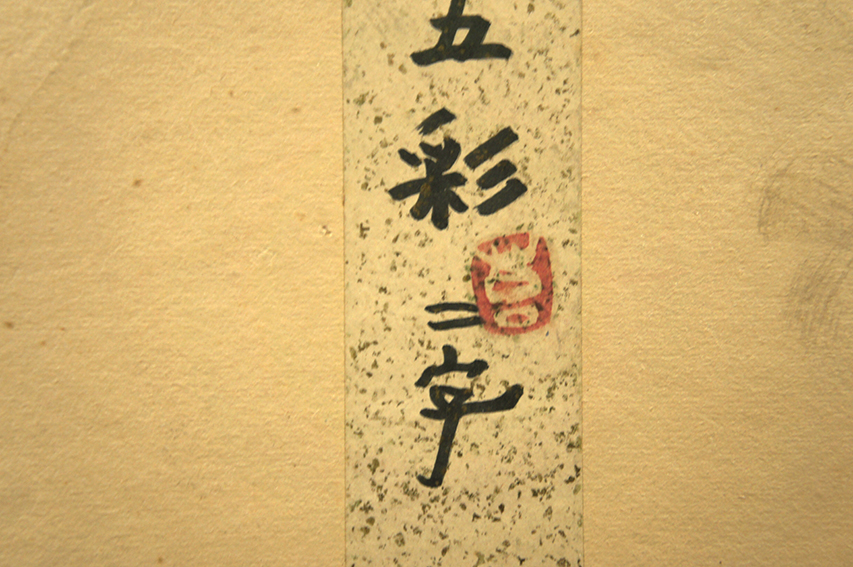 五彩二字